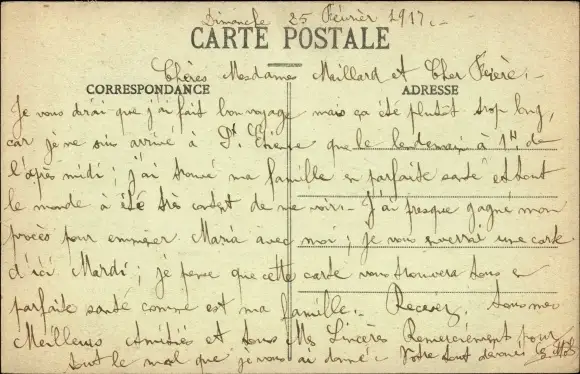 Dimanche 25 Février 1917.-
CARTE POSTALE
Chères Mesdames Maillard et Cher Frère;-
CORRESPONDANCE ADRESSE
Je vous dirai que j'ai fait bon voyage mais ça été plutôt trop long,
car je ne suis arrivé à St. Etienne que le lendemain à 1H. de
l'après midi; j'ai trouvé ma famille en parfaite santé et tout
le monde à été très content de me voir.- J'ai presque gagné mon
procès pour emmener Maria avec moi; je vous enverrai une carte
d'ici Mardi; je pense que cette carte vous trouvera tous en
parfaite santé comme est ma famille.- Recevez, tous mes
Meilleurs Amitiés et tous Mes Sincères Remerciement pour
tout le mal que je vous ai donné.- Votre tout dévoué